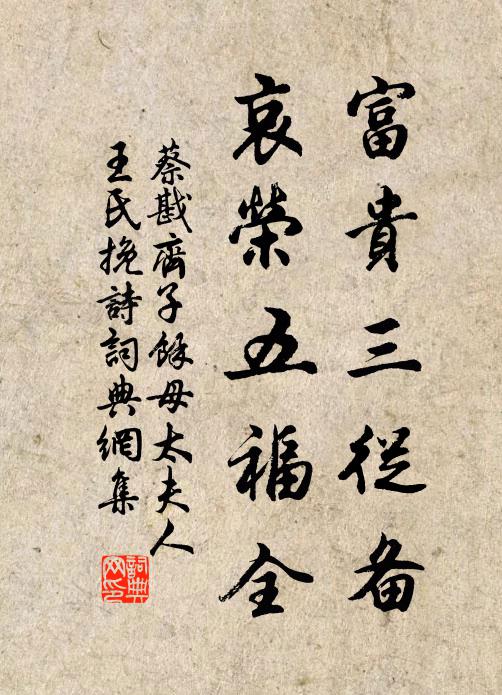 富貴三從备
哀榮五福全
蔡戡齊子餘母太夫人
王氏挽詩詞典網集
詞典网印